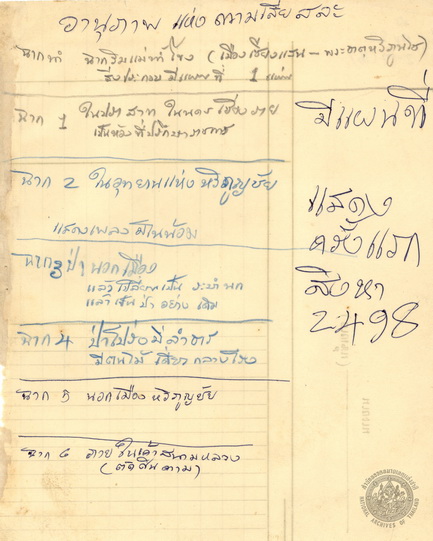 อานุภาพ แห่ง ความเสียสละ
ฉากนำ ฉากริมแม่น้ำโขง (เมืองเชียงแสน – พระธาตุหริภุญไชย)
สิ่งประกอบ มีแผนที่ 1 แผ่น
ฉาก 1 ในปราสาท ในนคร เชียงราย
เป็นห้องที่ปรึกษาราชการ
มีแผนที่
ฉาก 2 ในอุทยานแห่ง หริภูญชัย
แสดงเพลงมโนห์รา
แสดง
ครั้งแรก
สิงหา
2498
ฉาก 3 ป่า นอกเมือง
แล้วเปลี่ยนเป็น ระบำ นก
แล้วเป็น ป่า อย่าง เดิม
ฉาก 4 ป่าโปร่ง มีลำธาร
มีต้นไม้ เดียว กลางโรง
ฉาก 5 นอกเมือง หริภูญชัย
ฉาก 6 ภายใน
สนามหลวง
(ตัดสินความ)
สำนักหอจดหมายเหตุแห่งชาติ
NATIONAL ARCHIVES OF THAILAND